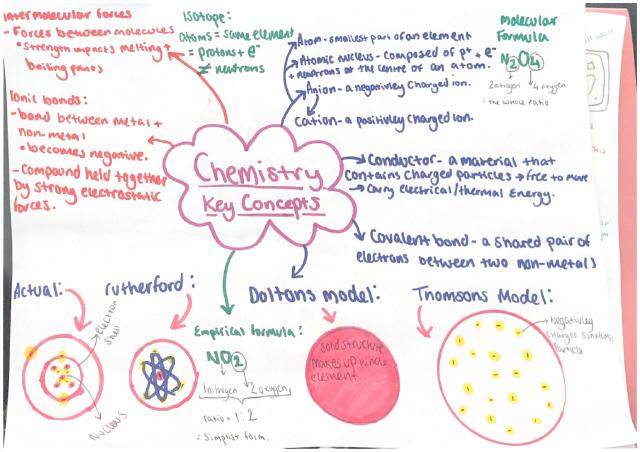 Intermolecular forces
- Forces between molecules
• Strength impacts melting +
boiling points
Isotope:
atoms = same element
= protons + e⁻
≠ neutrons
Atom - smallest part of an element
Atomic nucleus - composed of p⁺ + e⁻
+ neutrons at the centre of an atom.
Anion - a negativley charged ion.
Cation - a positivley charged ion.
Molecular
Formula
N₂O₄
2 nitrogen 4 oxygen
: the whole ratio
Ionic bonds:
- bond between metal +
non-metal
• becomes negative.
- Compound held together
by strong electrostatic
forces.
Chemistry
Key Concepts
Conductor - a material that
contains charged particles → free to move
→ Carry electrical/thermal Energy.
Covalent bond - a shared pair of
electrons between two non-metals
Actual:
electron
shell
Nucleus
rutherford:
Empirical formula:
NO₂
1 nitrogen 2 oxygen
ratio = 1:2
: Simplist form.
Daltons model:
Solid structure
makes up whole
element
Thomsons Model:
Negativley
charges
Particle